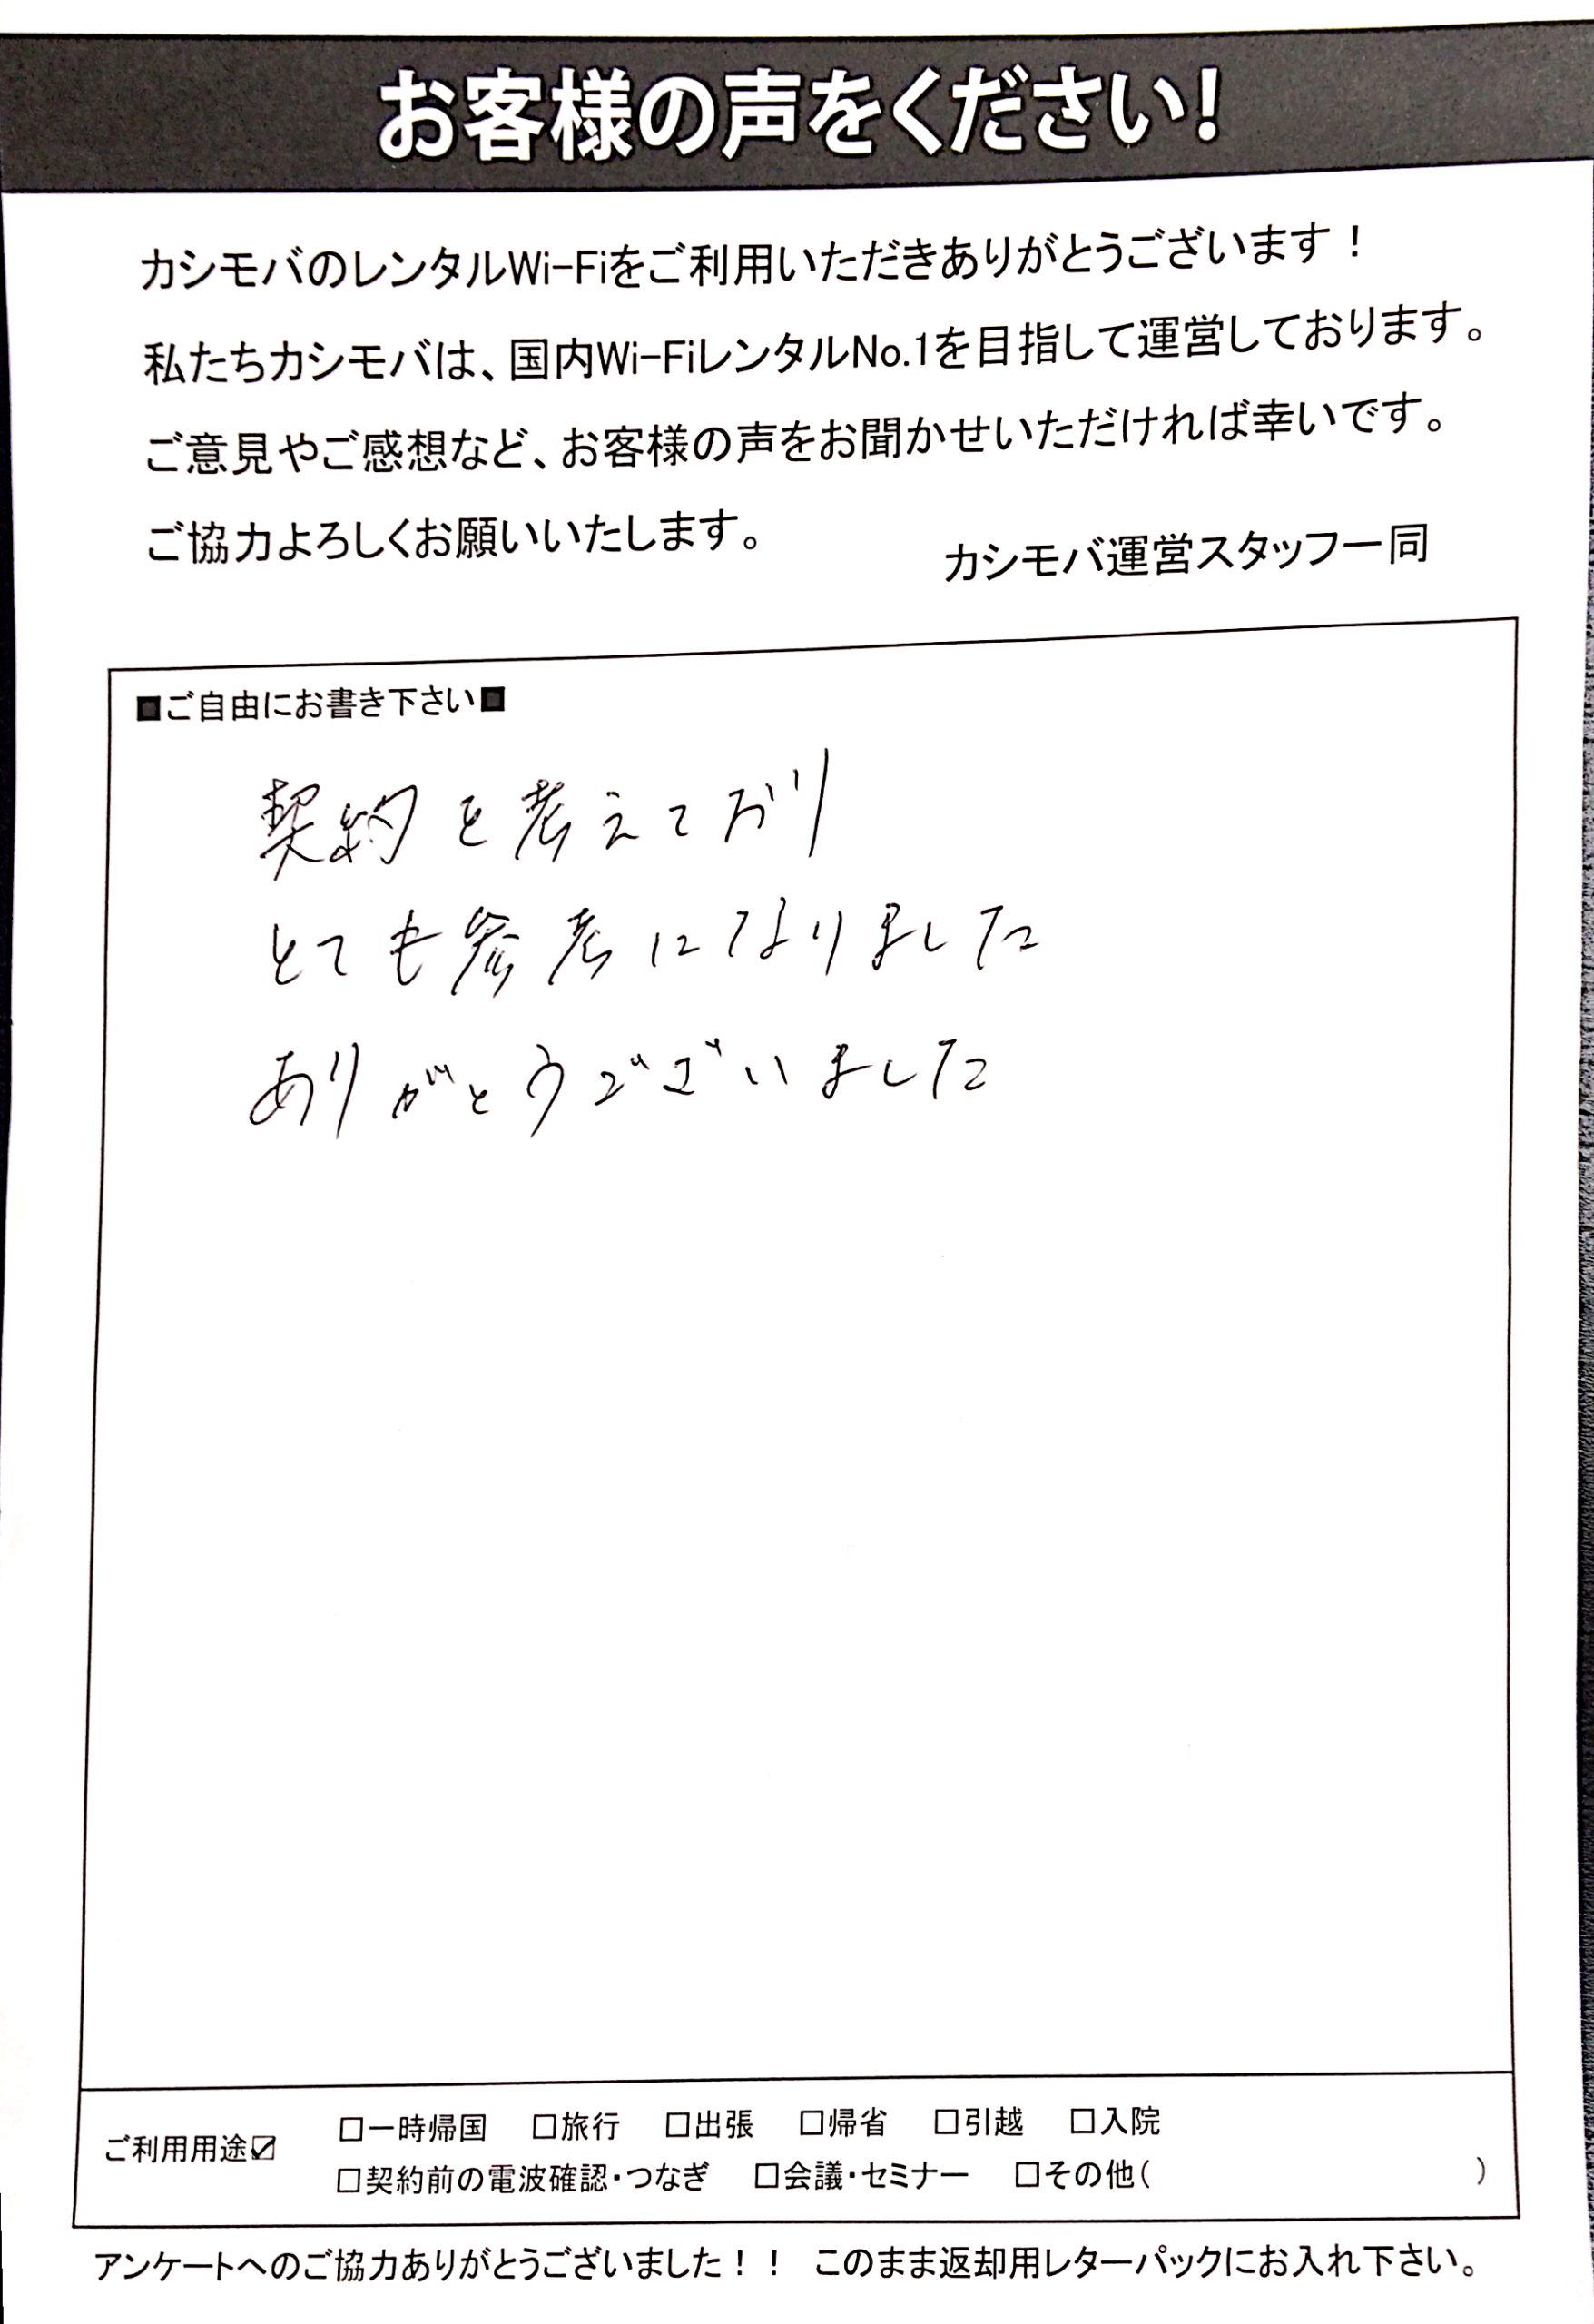 お客様の声をください!
カシモバのレンタルWi-Fiをご利用いただきありがとうございます！
私たちカシモバは、国内Wi-FiレンタルNo.1を目指して運営しております。
ご意見やご感想など、お客様の声をお聞かせいただければ幸いです。
ご協力よろしくお願いいたします。
カシモバ運営スタッフ一同
■ご自由にお書き下さい■
契約を考えており
とても参考になりました
ありがとうございました
ご利用用途☑
□一時帰国 □旅行 □出張 □帰省 □引越 □入院
□契約前の電波確認・つなぎ □会議・セミナー □その他( )
アンケートへのご協力ありがとうございました！！ このまま返却用レターパックにお入れ下さい。